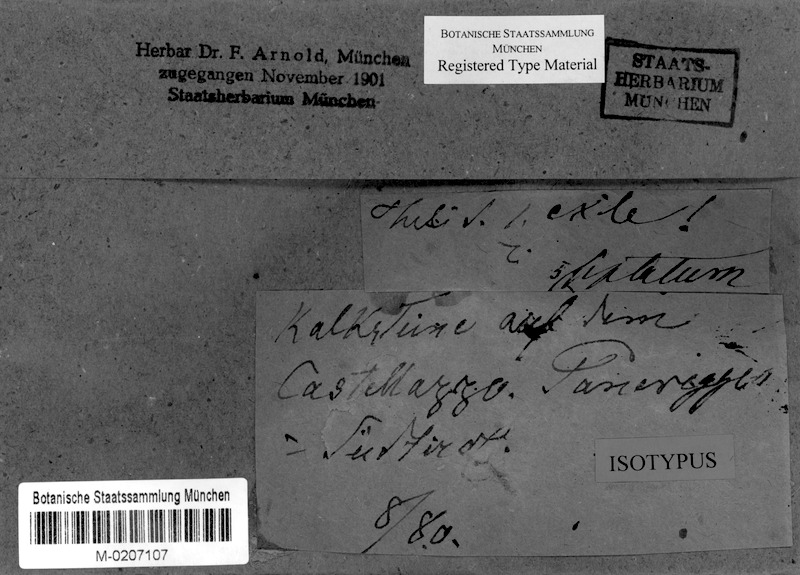 Herbar Dr. F. Arnold, München
zugegangen November 1901
Staatsherbarium München
BOTANISCHE STAATSSAMMLUNG
MÜNCHEN
Registered Type Material
STAATS-
HERBARIUM
MÜNCHEN
exile!
Kalksteine auf dem
Castellazzo. Paneveggio
Südtirol.
ISOTYPUS
8/80.
Botanische Staatssammlung München
M-0207107